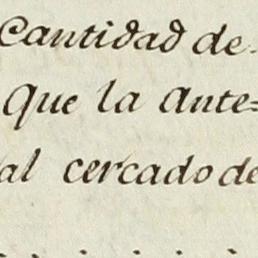 Cantidad de
Que la ante=
al cercado de